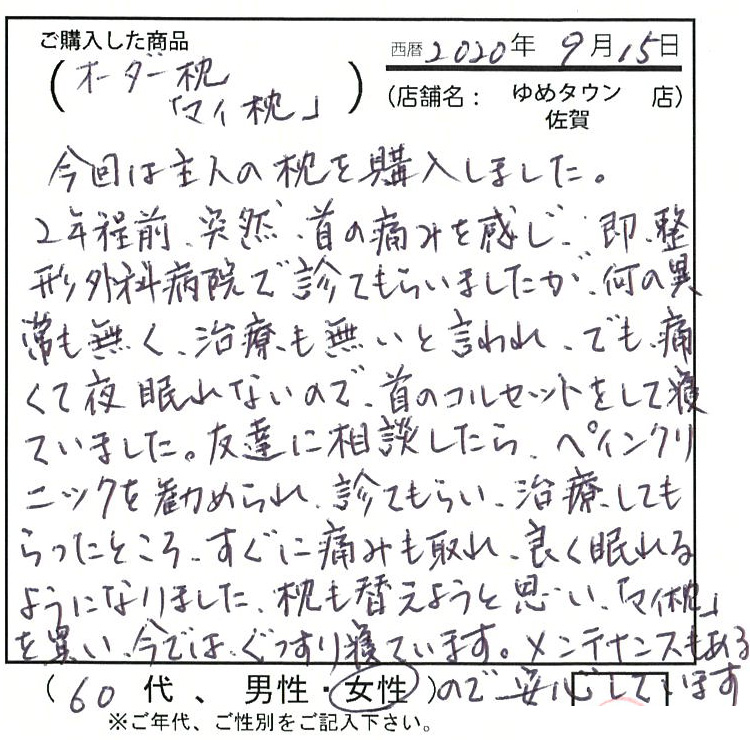 ご購入した商品
(オーダー枕
「マイ枕」)
西暦2020年 9月15日
(店舗名： ゆめタウン 店)
佐賀
今回は主人の枕を購入しました。
2年程前、突然、首の痛みを感じ、即、整
形外科病院で診てもらいましたが、何の異
常も無く、治療も無いと言われ、でも、痛
くて夜眠れないので、首のコルセットをして寝
ていました。友達に相談したら、ペインクリ
ニックを勧められ、診てもらい、治療しても
らったところ、すぐに痛みも取れ、良く眠れる
ようになりました、枕も替えようと思い、「マイ枕」
を買い、今では、ぐっすり寝ています。メンテナンスもある
(60代、男性・女性)ので安心しています
※ご年代、ご性別をご記入下さい。